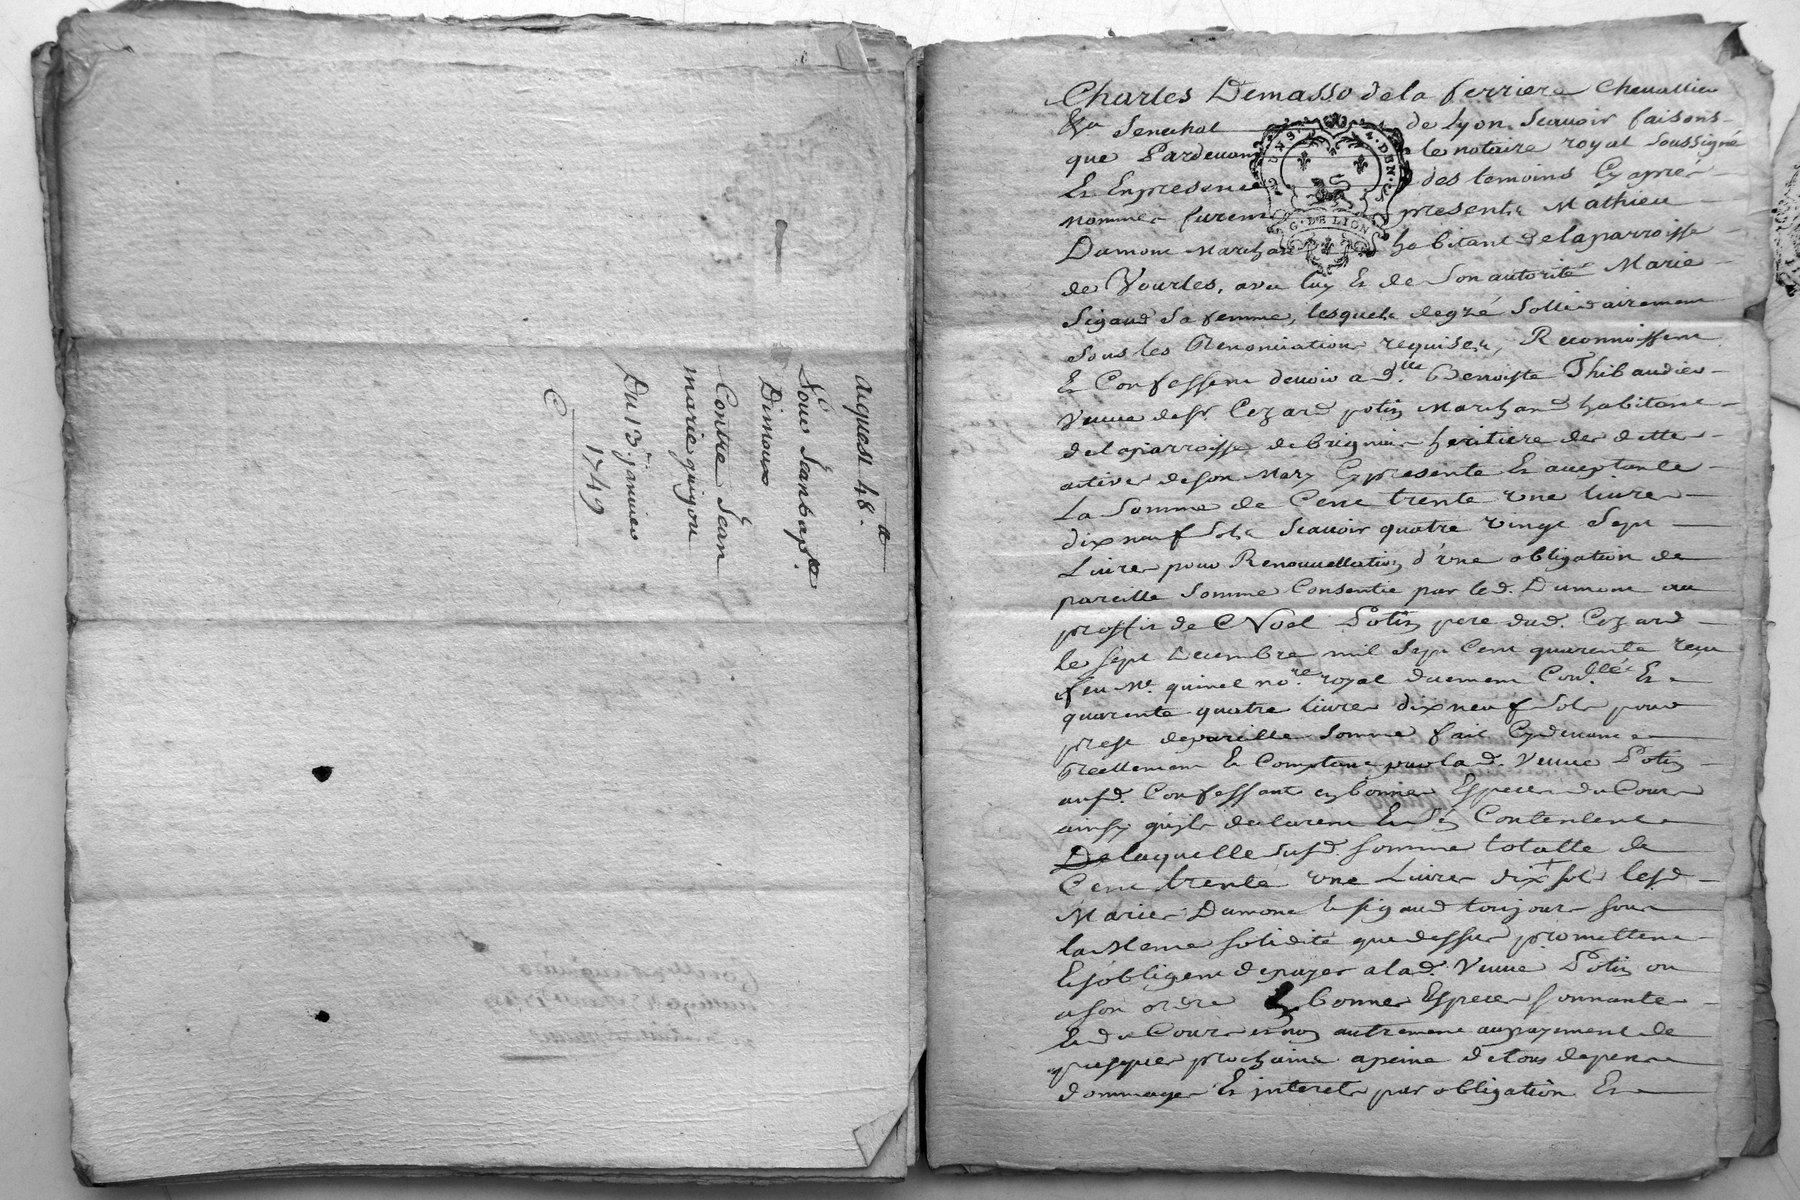 aquest 48.tt
Sieur Jean bapte
Dimoux
Contre Jean
marie guigou
Du 13e janvier
1749
Charles Demasso de la ferriere Chevallier
Senechal de Lyon Scavoir faisons
que Pardevant le notaire royal Soussigné
Et En presence des temoins Cy apres
nommes furent presents Mathieu
Dumont Marchand habitant de la parroisse
de Vourles, avec luy Et de Son autorité Marie
Sigaud Sa femme, lesquels de gré Sollidairement
Sous les Renonciations requises, Reconnoissent
Et Confessent devoir a dlle Benoiste Thibaudier
Veuve de sr Cezard potin Marchand habitante
de la parroisse de brignais heritiere des dettes
actives de son Mary Cy presente Et acceptante
La Somme de Cent trente une livres
dix neuf Sols Scavoir quatre vingt Sept
Livres pour Renouvellation d'une obligation de
pareille Somme Consentie par led. Dumont au
proffit de Noel Potin pere dud. Cezard
le sept Decembre mil Sept Cent quarente receu
feu Me. quinet nore royal duement Conllée Et
quarente quatre livres dix neuf Sols pour
prest de pareille Somme fait Cy devant
Reellement Et Comptant par lad. Veuve Potin
ausd. Confessants en bonnes Especes du Cours
ainsy qu'ils declarent Et s'en Contentent
De laquelle susd. somme totalle de
Cent trente une Livres dix sols lesd.
Maries Dumont Et sigaud toujours sous
la Meme solidité que dessus promettent
Et s'obligent de payer a lad. Veuve Potin ou
a son ordre En bonnes Especes sonnantes
Et du Cours et non autrement au payement de
prochains a peine de tous depens
dommages Et interets par obligation Et
G. DE LION